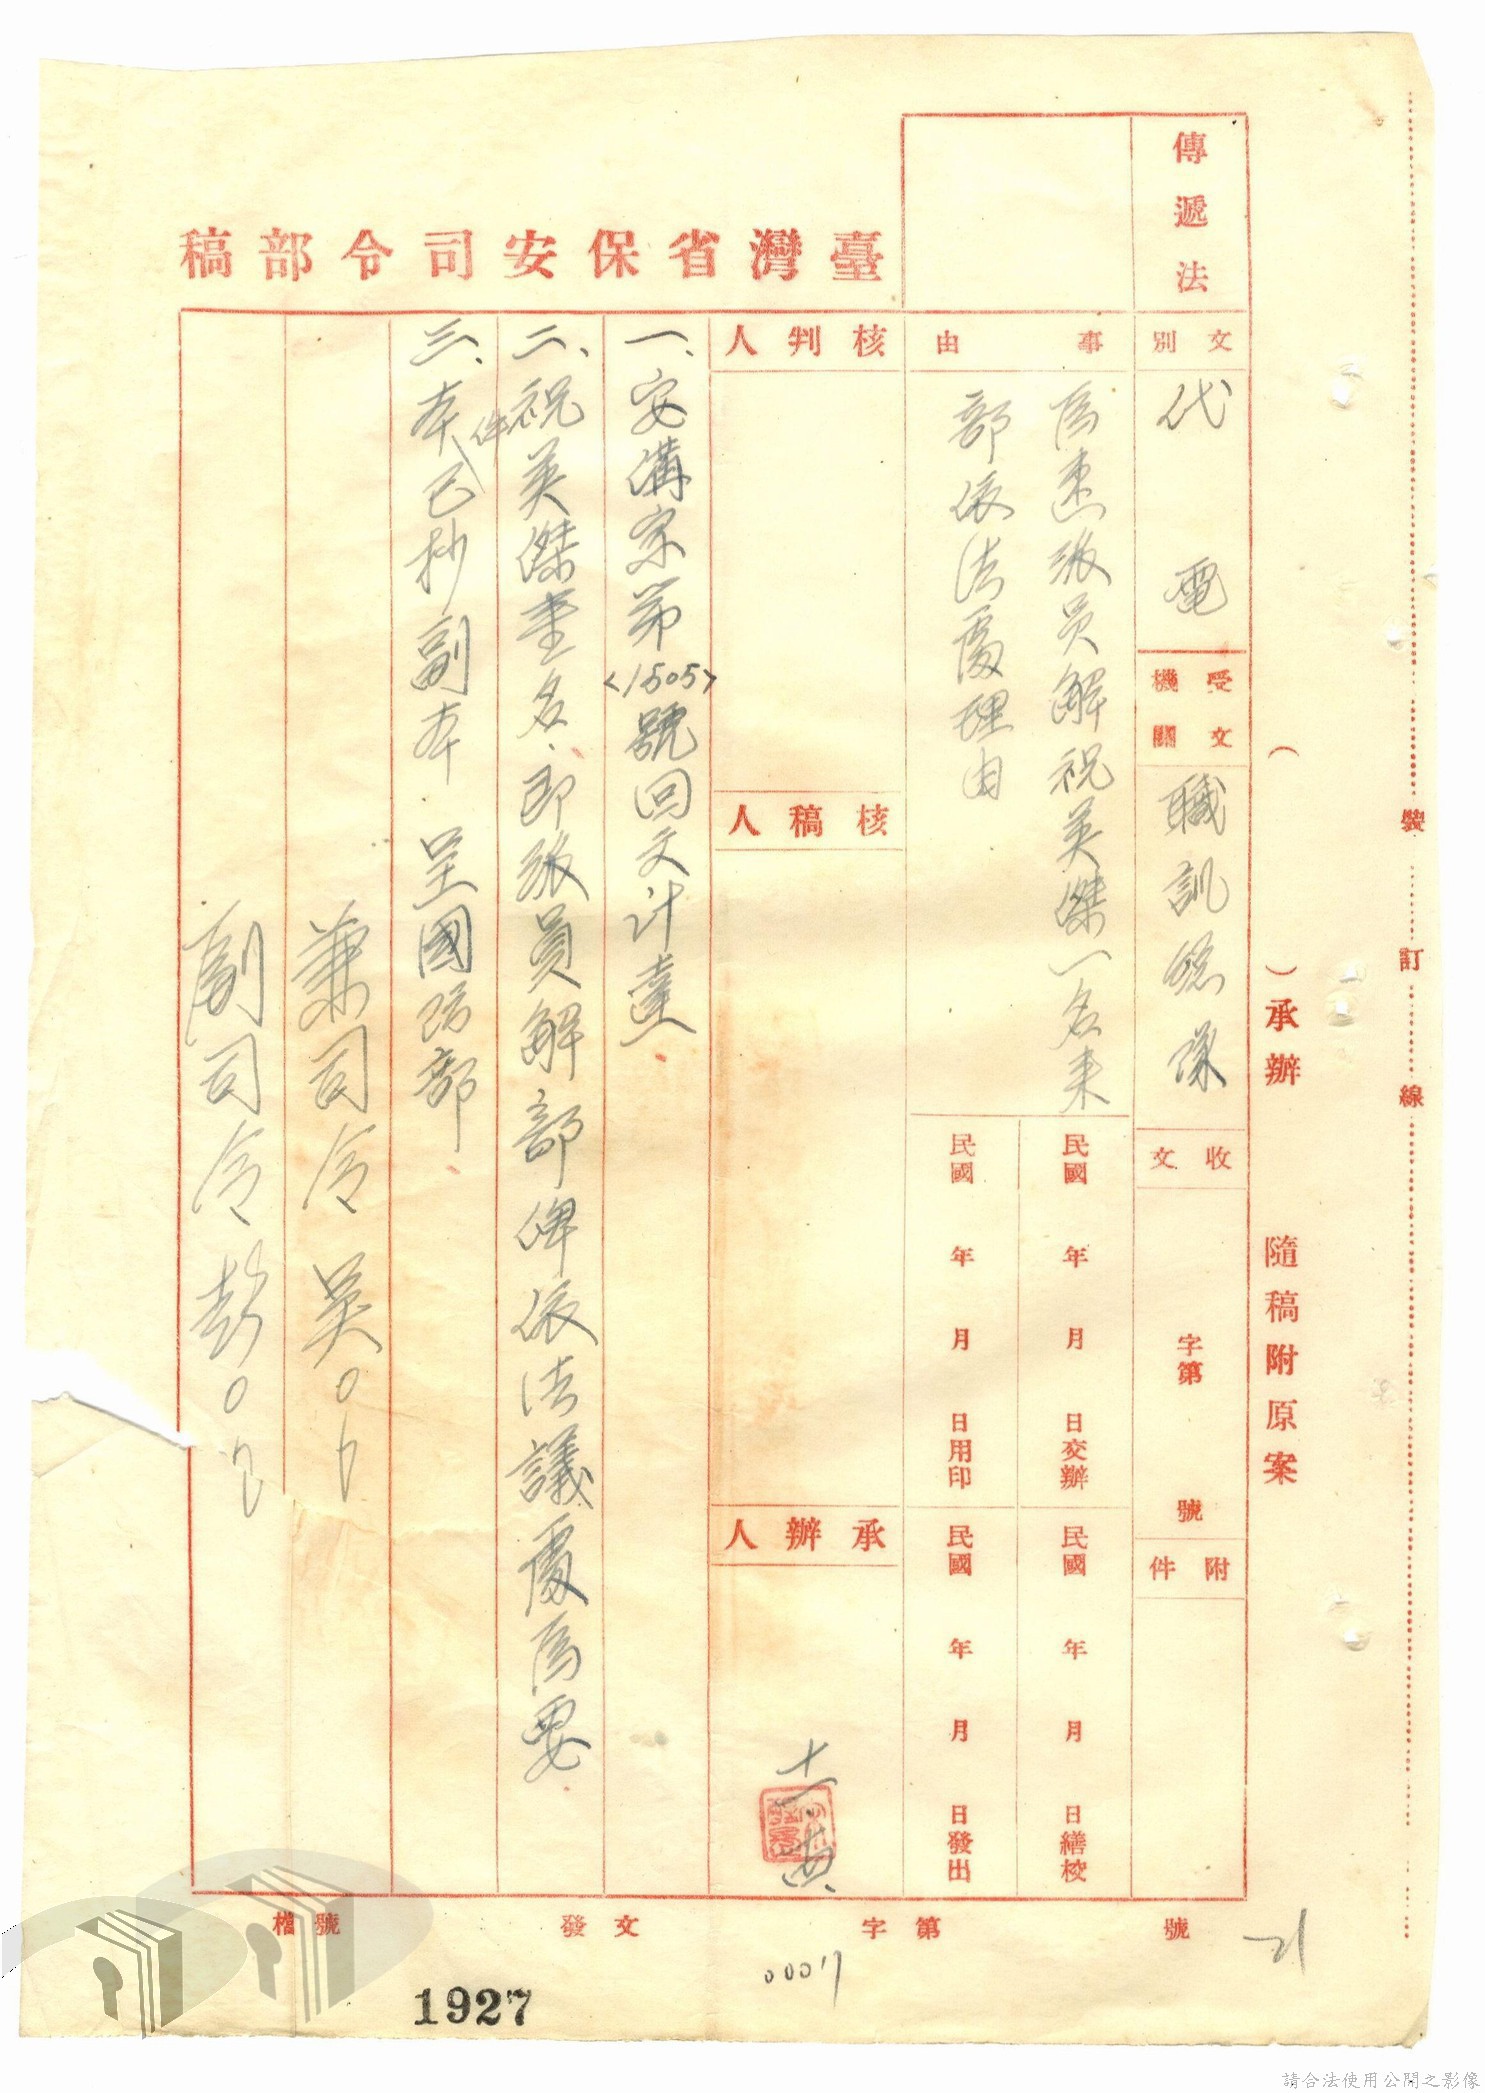 裝訂線
(　)承辦　隨稿附原案
傳遞法
臺灣省保安司令部稿
文別
代電
受文機關
職訓總隊
收文
字第　號
附件
事由
為速派員解祝英傑一名來
部依法處理由
民國　年　月　日交辦
民國　年　月　日繕校
民國　年　月　日用印
民國　年　月　日發出
核判人
核稿人
承辦人
一、安溝字第<1505>號回文計達
二、祝英傑壹名、即派員解部俾依法議處為要
三、本件已抄副本呈國防部
兼司令吳〇
副司令彭〇
檔號
發文　字第　號
21
00017
1927
請合法使用公開之影像